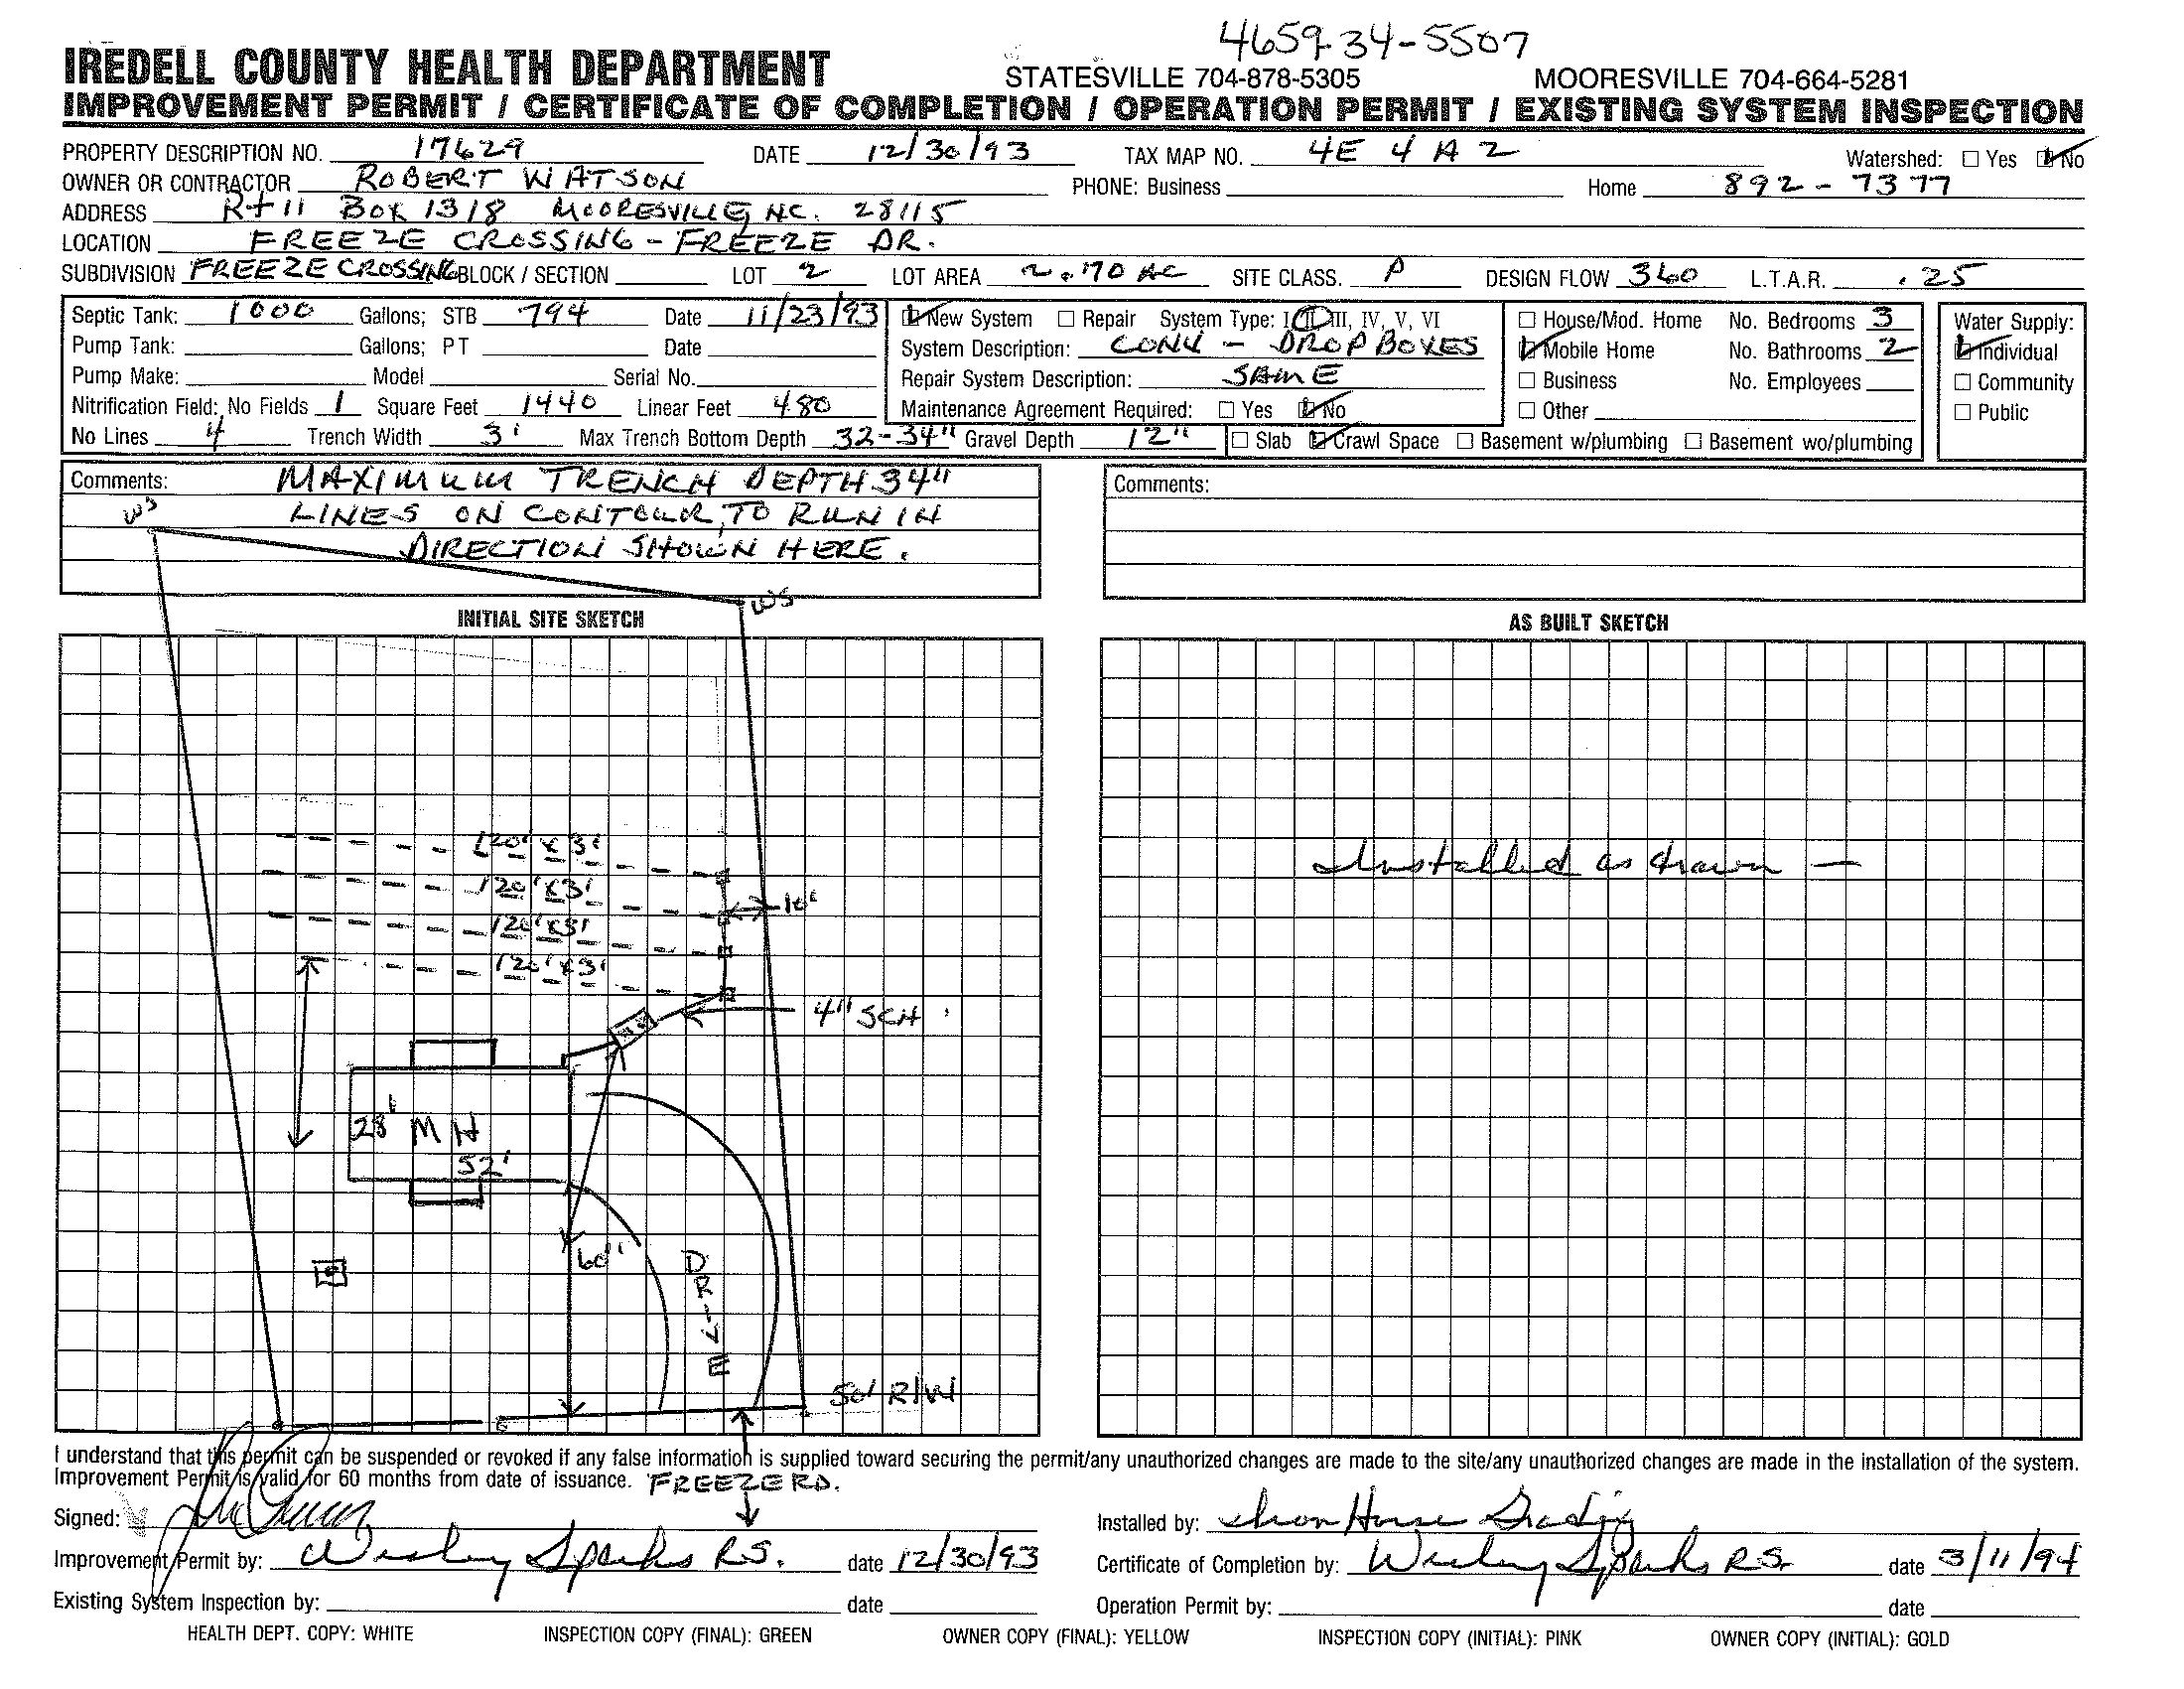 4659-34-5507
IREDELL COUNTY HEALTH DEPARTMENT STATESVILLE 704-878-5305 MOORESVILLE 704-664-5281
IMPROVEMENT PERMIT / CERTIFICATE OF COMPLETION / OPERATION PERMIT / EXISTING SYSTEM INSPECTION
PROPERTY DESCRIPTION NO. 17629 DATE 12/30/93 TAX MAP NO. 4E 4 A 2 Watershed: Yes No
OWNER OR CONTRACTOR ROBERT WATSON PHONE: Business Home 892-7377
ADDRESS Rt 11 Box 1318 MOORESVILLE, NC. 28115
LOCATION FREEZE CROSSING - FREEZE DR.
SUBDIVISION FREEZE CROSSING BLOCK / SECTION LOT 2 LOT AREA 2.70 AC SITE CLASS. P DESIGN FLOW 360 L.T.A.R. .25
Septic Tank: 1000 Gallons; STB 794 Date 11/23/93 New System Repair System Type: I, II, III, IV, V, VI House/Mod. Home No. Bedrooms 3 Water Supply:
Pump Tank: Gallons; PT Date System Description: CONV - DROP BOXES Mobile Home No. Bathrooms 2 Individual
Pump Make: Model Serial No. Repair System Description: SAME Business No. Employees Community
Nitrification Field: No Fields 1 Square Feet 1440 Linear Feet 480 Maintenance Agreement Required: Yes No Other Public
No Lines 4 Trench Width 3' Max Trench Bottom Depth 32-34" Gravel Depth 12" Slab Crawl Space Basement w/plumbing Basement wo/plumbing
Comments: MAXIMUM TRENCH DEPTH 34" Comments:
WS LINES ON CONTOUR, TO RUN IN
DIRECTION SHOWN HERE.
WS
INITIAL SITE SKETCH AS BUILT SKETCH
120' x 3'
Installed as drawn —
120' x 3'
10'
120' x 3'
120' x 3'
4" SCH
28' MH
52'
60"
DRIVE
50' R/W
I understand that this permit can be suspended or revoked if any false information is supplied toward securing the permit/any unauthorized changes are made to the site/any unauthorized changes are made in the installation of the system.
Improvement Permit is valid for 60 months from date of issuance. FREEZE RD.
Signed: Installed by: Iron Horse Grading
Improvement Permit by: Wesley Sparks R.S. date 12/30/93 Certificate of Completion by: Wesley Sparks R.S. date 3/11/94
Existing System Inspection by: date Operation Permit by: date
HEALTH DEPT. COPY: WHITE INSPECTION COPY (FINAL): GREEN OWNER COPY (FINAL): YELLOW INSPECTION COPY (INITIAL): PINK OWNER COPY (INITIAL): GOLD